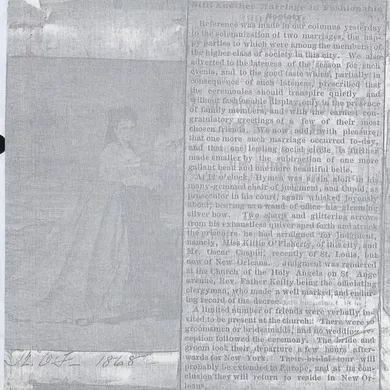 Still Another Marriage in Fashionable
Society.
Reference was made in our columns yesterday
to the solemnization of two marriages, the hap-
py parties to which were among the members of
the higher class of society in this city. We also
adverted to the lateness of the season for such
events, and to the good taste which, partially in
consequence of such lateness, prescribed that
the ceremonies should transpire quietly and
without fashionable display, only in the presence
of family members, and with the earnest con-
gratulatory greetings of a few of their most
chosen friends. We now add, with pleasure,
that one more such marriage occurred to-day,
and that our leading social circle is further
made smaller by the subtraction of one more
gallant beau and one more beautiful belle.
At o'clock, Hymen was again aloft in his
many-gemmed chair of judgment, and Cupid,
prosecutor in his court, again whisked joyously
about, bearing as a wand of office his gleaming
silver bow. Two sharp and glittering arrows
from his exhaustless quiver sped forth and struck
the prisoners he had arraigned for judgment,
namely, Miss Kittie O'Flaherty, of this city, and
Mr. Oscar Chopin, recently of St. Louis, but
now of New Orleans. Judgment was rendered
at the Church of the Holy Angels on St. Ange
avenue, Rev. Father Keilty being the officiating
clergyman, who made a well marked and endur-
ing record of the decree.
A limited number of friends were verbally in-
vited to be present at the church. There were no
groomsmen or bridesmaids, and no wedding re-
ception followed the ceremony. The bride and
groom took their departure a few hours after-
wards for New York. Their bridal tour will
probably be extended to Europe, and at its con-
clusion they will return to reside in New Or-
1868